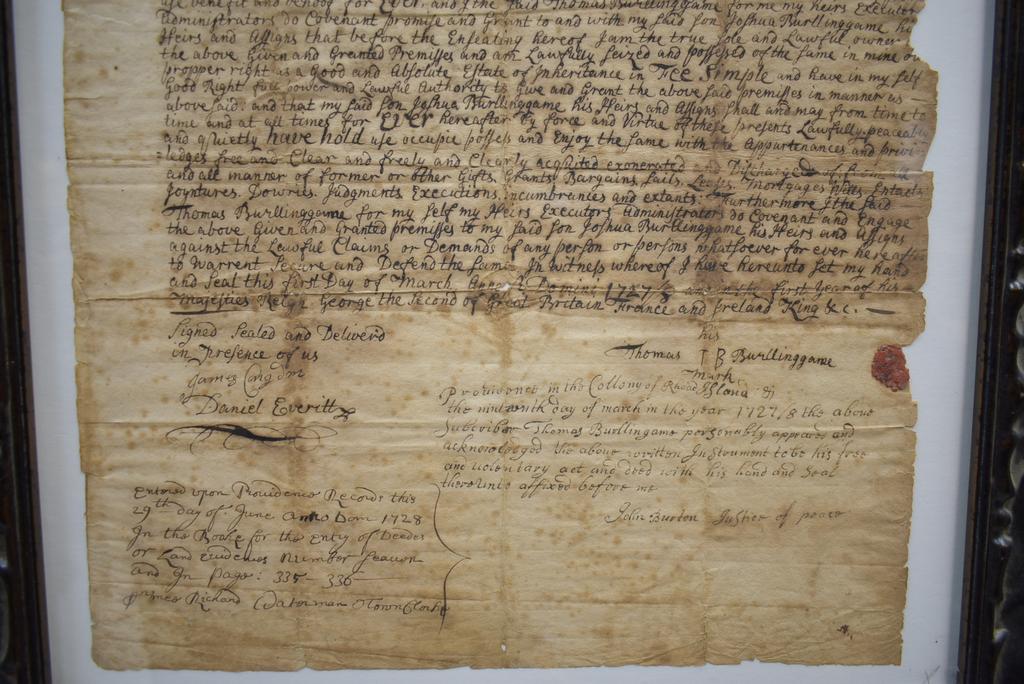 use benefit and behoof for Ever. and I the said Thomas Burllinggame for me my heirs Executors
Administrators do Covenant promise and Grant to and with my said son Joshua Burllinggame his
Heirs and Assigns that before the Ensealing hereof I am the true sole and Lawful owner
the above Given and Granted Premisses and am Lawfully seized and possessed of the same in mine own
propper right as a Good and Absolute Estate of Inheritance in Fee Simple and have in my self
Good Right full power and Lawful Authority to Give and Grant the above said premisses in manner as
abovesaid: and that my said son Joshua Burllinggame his Heirs and Assigns shall and may from time to
time and at all times for Ever hereafter by force and Virtue of these presents Lawfully peaceably
and quietly have hold use occupie possess and Enjoy the same with the Appurtenances and privi-
ledges free and Clear and freely and Clearly acquited exonerated and Discharged of from
and all manner of former or other Gifts Grants Bargains Sails Leases Mortgages Wills Entails
Joyntures Dowries Judgments Executions Incumbrances and extants. Furthermore I the said
Thomas Burllinggame for my self my Heirs Executors Administrators do Covenant and Engage
the above Given and Granted premisses to my said son Joshua Burllinggame his Heirs and Assigns
against the Lawful Claims or Demands of any person or persons whatsoever for ever hereafter
to Warrent Secure and Defend the same. In witness whereof I have hereunto set my hand
and Seal this first Day of March Anno Domini 1727/8 and in the first Year of his
Majesties Reign George the Second of Great Britain France and Ireland King &c.
Signed Sealed and Deliverd
in Presence of us
James Congdon
Daniel Everitt
his
Thomas T B Burllinggame
mark
Providence in the Collony of Rhoad Island
the ninteenth day of march in the year 1727/8 the above
Subscriber Thomas Burllingame personably appeared and
acknowledged the above written Instrument to be his free
and volentary act and deed with his hand and Seal
thereunto affixed before me
John Burton Justice of peace
Entered upon Providence Records this
29th day of June Anno Dom 1728
In the Booke for the Entry of Deedes
or Land Evidences Number Seaven
and In Page: 335 - 336
Richard Waterman Town Clerke